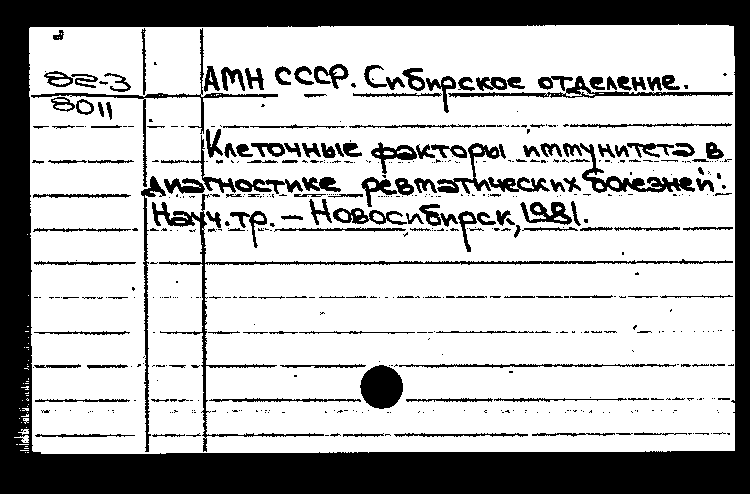 82-3
8011
АМН СССР. Сибирское отделение.
Клеточные факторы иммунитета в
диагностике ревматических болезней:
Науч. тр. – Новосибирск, 1981.